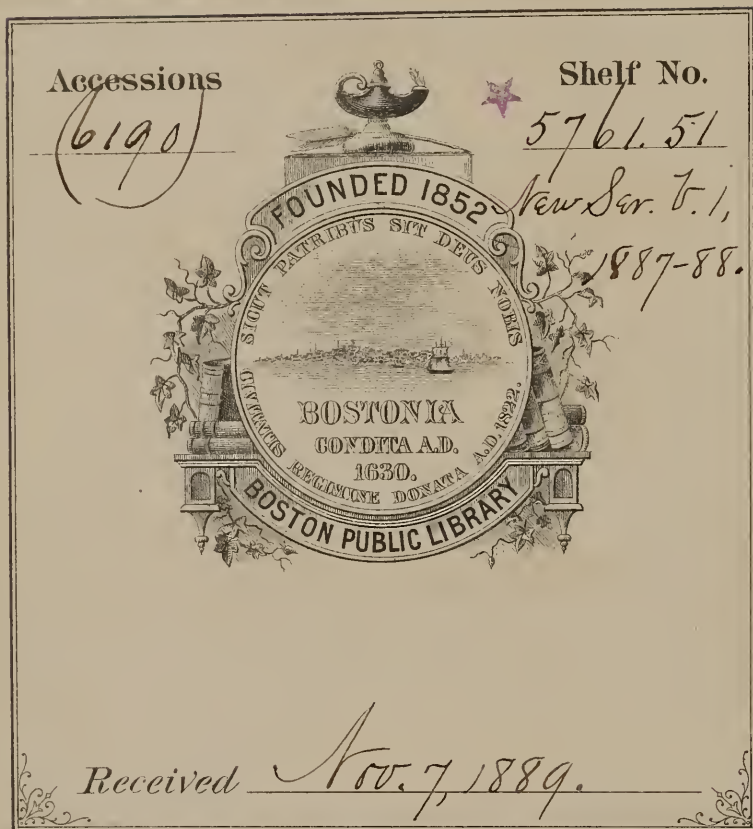 Accessions
(6190)
Shelf No.
5761.51
New Ser. V. 1,
1887-88.
FOUNDED 1852
SICUT PATRIBUS SIT DEUS NOBIS
BOSTONIA
CONDITA A.D.
1630.
CIVITATIS REGIMINE DONATA A.D. 1822.
BOSTON PUBLIC LIBRARY
Received Nov. 7, 1889.